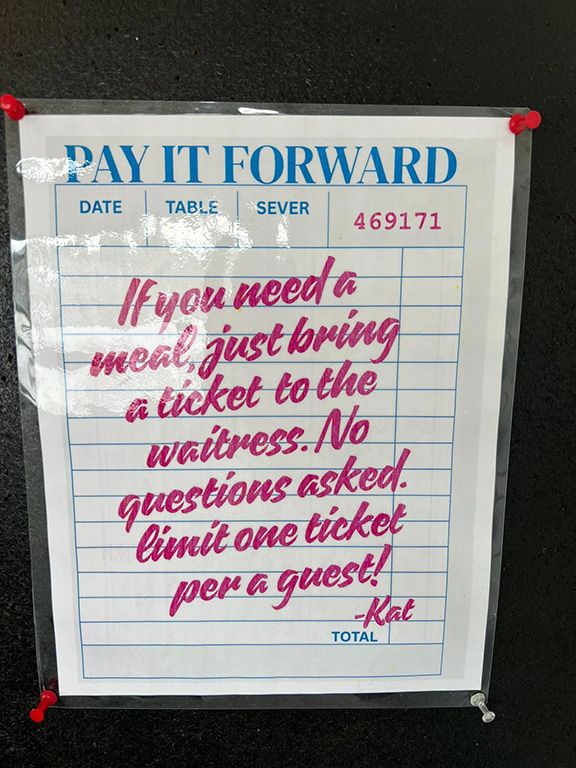 PAY IT FORWARD
DATE TABLE SEVER 469171
If you need a
meal, just bring
a ticket to the
waitress. No
questions asked.
limit one ticket
per a guest!
-Kat
TOTAL